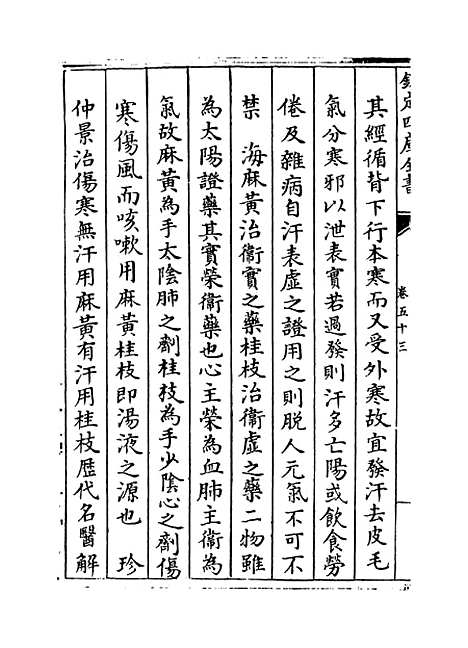 欽定四庫全書
卷五十三
其經循背下行本寒而又受外寒故宜發汗去皮毛
氣分寒邪以泄表實若過發則汗多亡陽或飲食勞
倦及雜病自汗表虛之證用之則脱人元氣不可不
禁　海麻黃治衞實之藥桂枝治衞虛之藥二物雖
為太陽證藥其實榮衞藥也心主榮為血肺主衞為
氣故麻黃為手太陰肺之劑桂枝為手少陰心之劑傷
寒傷風而咳嗽用麻黃桂枝即湯液之源也　珍
仲景治傷寒無汗用麻黃有汗用桂枝歴代名醫解